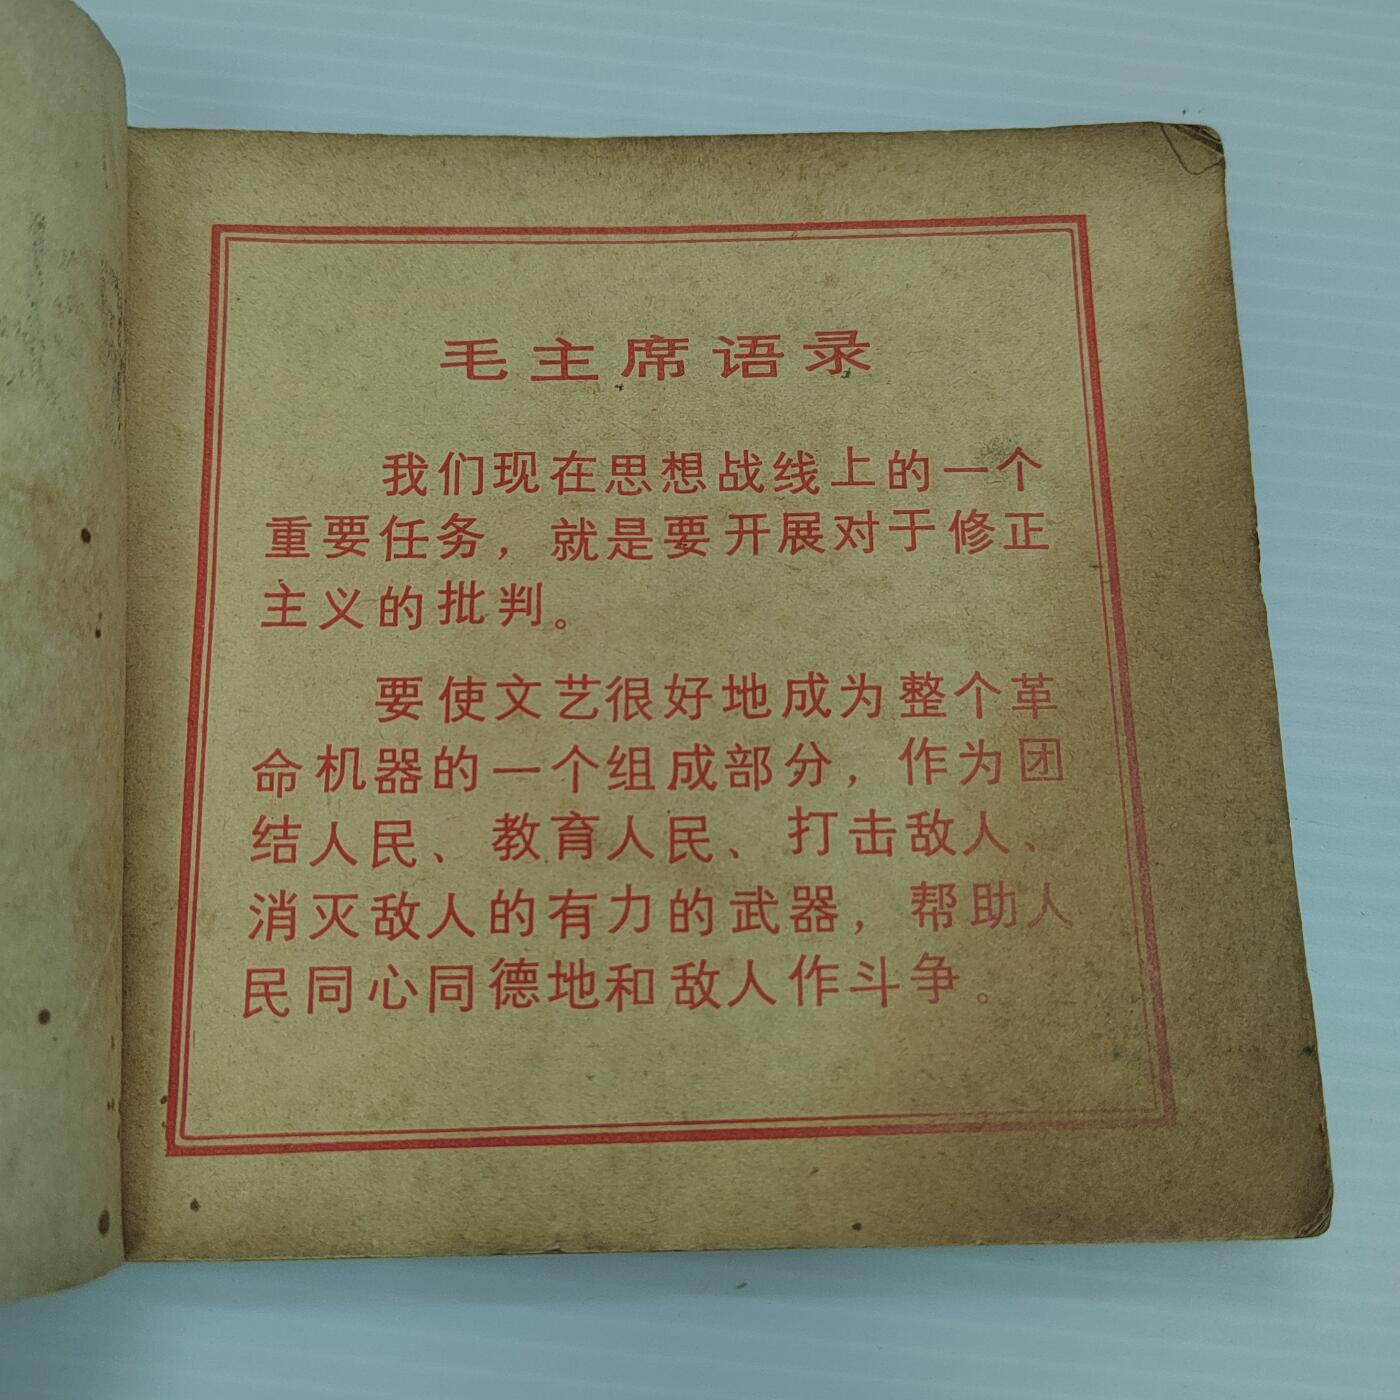 毛主席语录
我们现在思想战线上的一个
重要任务，就是要开展对于修正
主义的批判。
要使文艺很好地成为整个革
命机器的一个组成部分，作为团
结人民、教育人民、打击敌人、
消灭敌人的有力的武器，帮助人
民同心同德地和敌人作斗争。